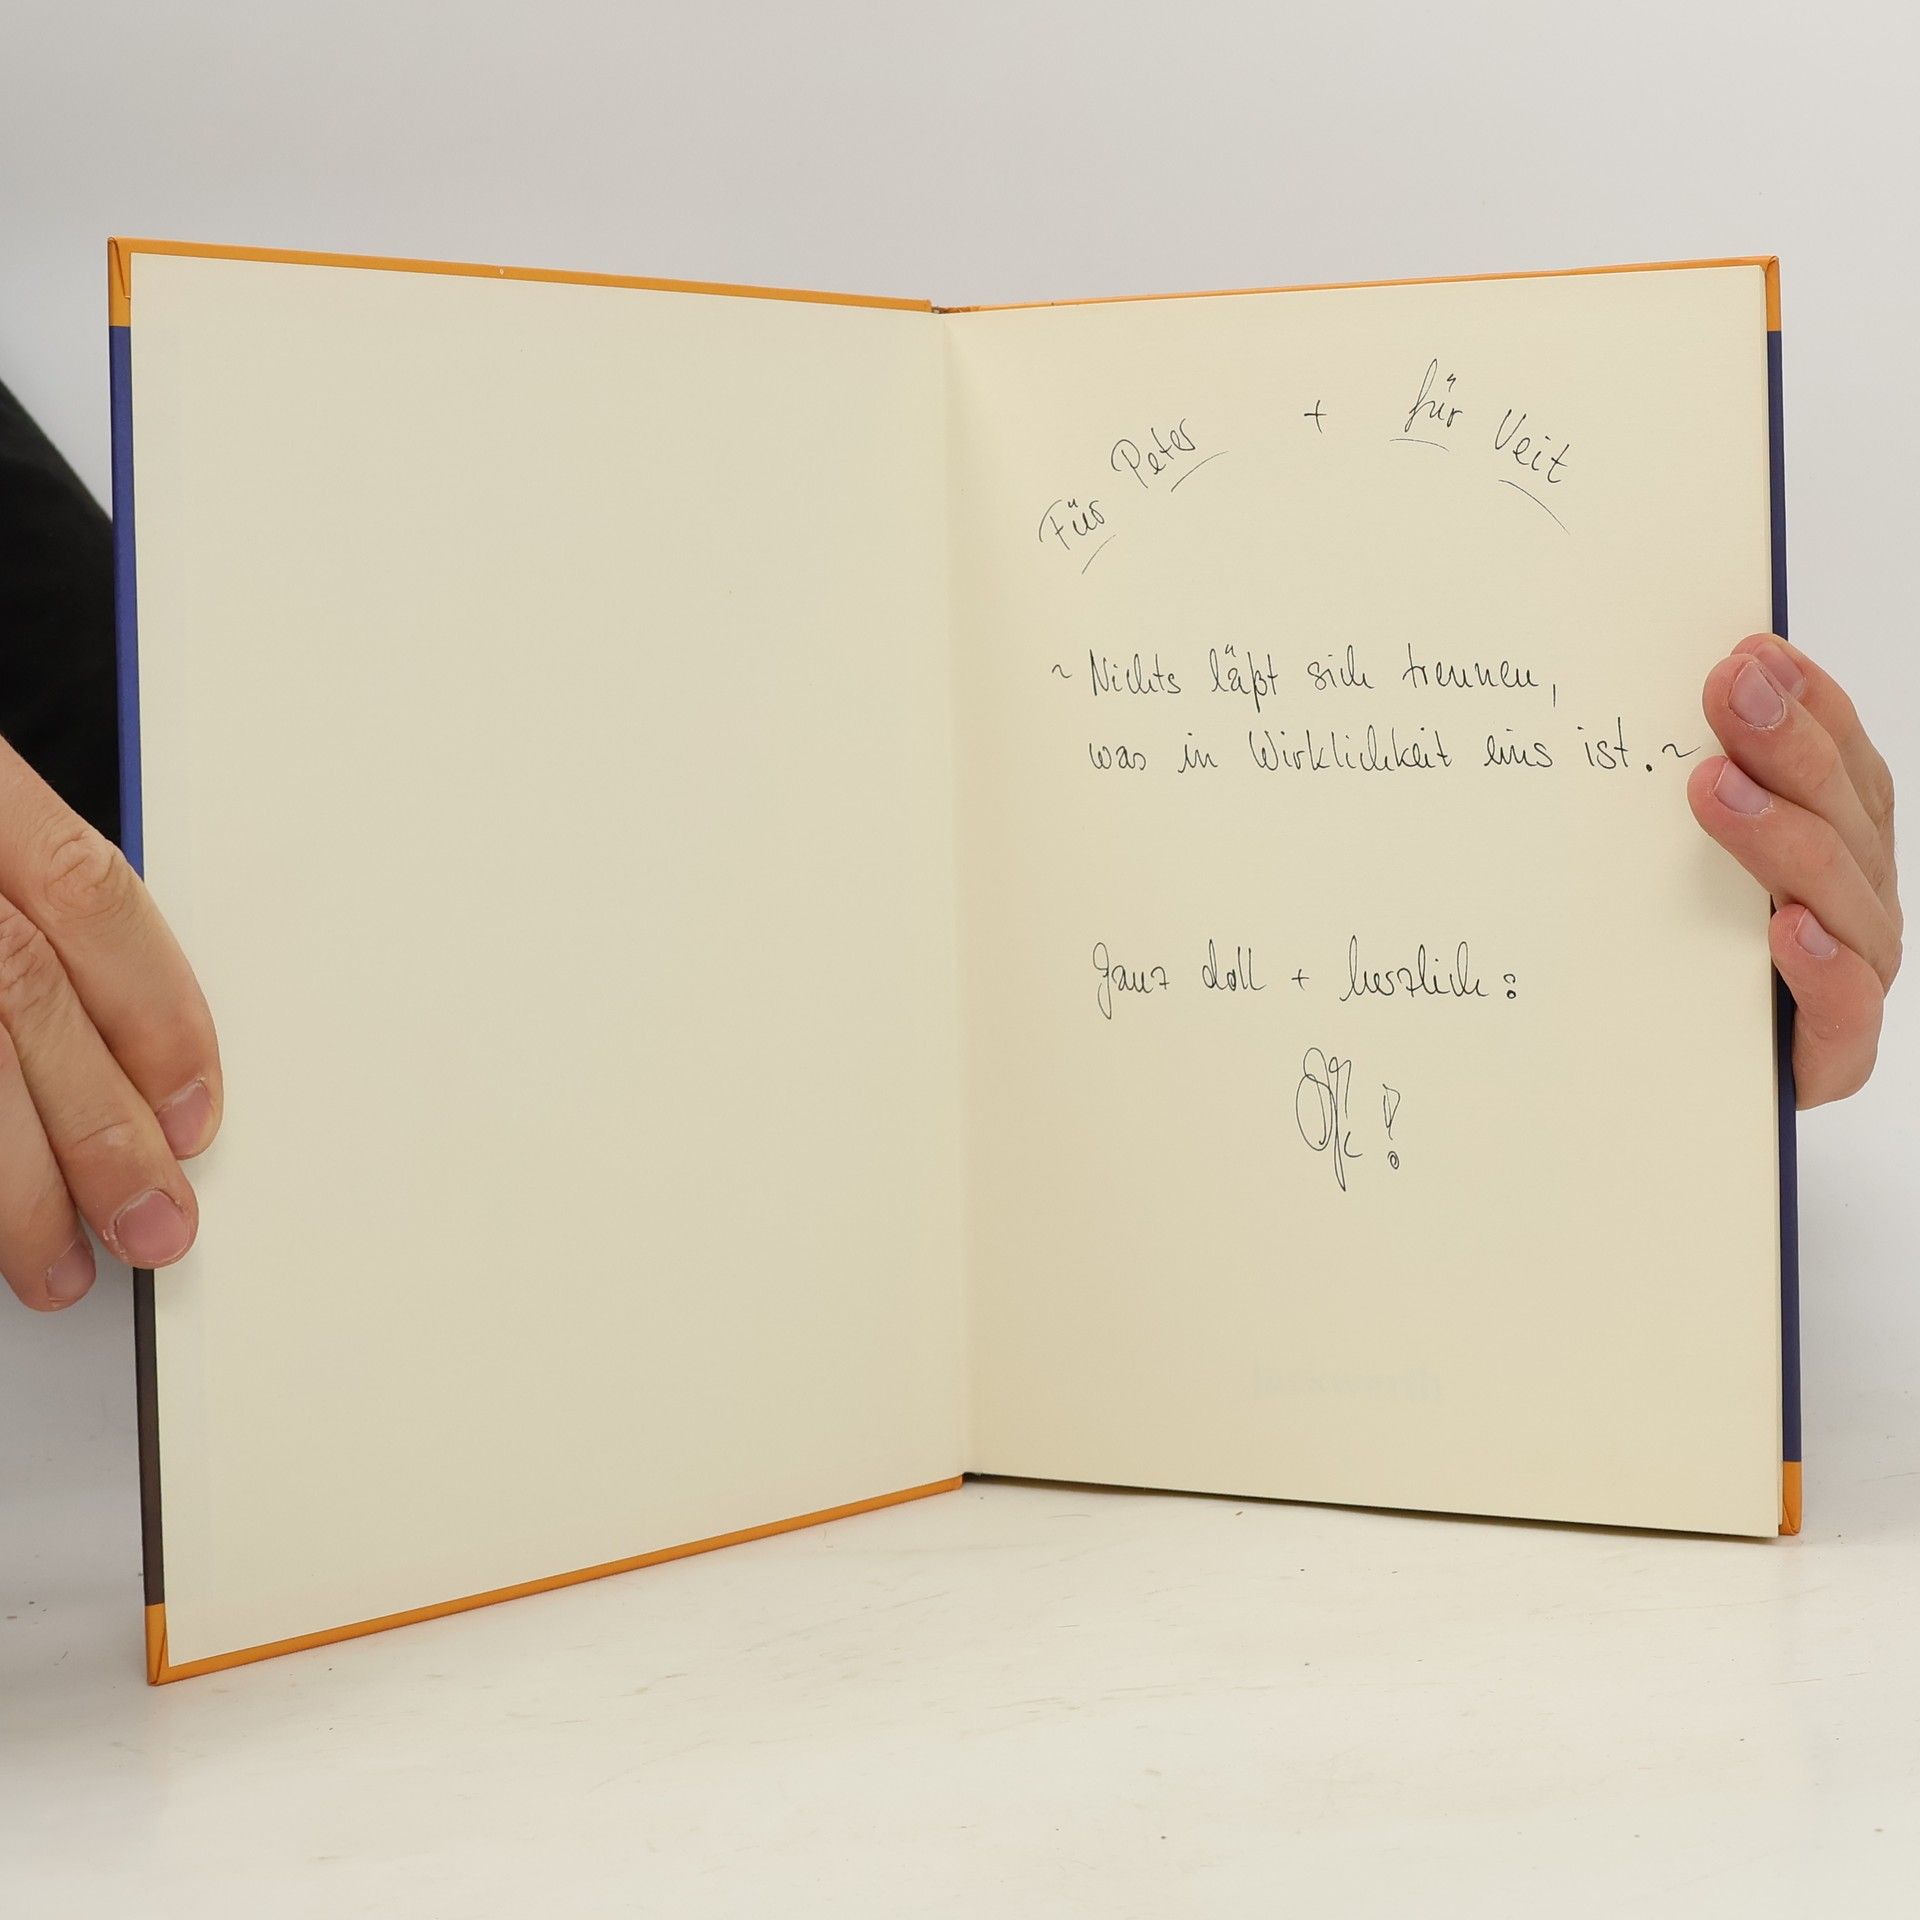 Für Peter + für Veit
~ Nichts läßt sich trennen,
was in Wirklichkeit eins ist. ~
Ganz doll + herzlich: